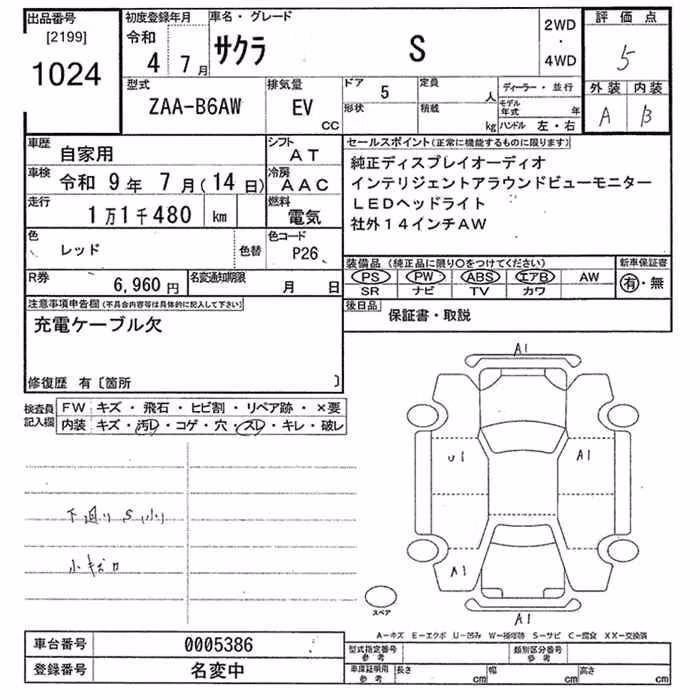 出品番号
[2199]
1024
初度登録年月
令和
4 7月
車名・グレード
サクラ S
2WD
・
4WD
評価点
5
型式
ZAA-B6AW
排気量
EV
CC
ドア
5
形状
定員
人
積載
kg
ディーラー・並行
モデル年式 年
ハンドル 左・右
外装 内装
A B
車歴
自家用
シフト
AT
車検
令和 9年 7月(14日)
冷房
AAC
走行
1万1千480 km
燃料
電気
色
レッド
色替
色コード
P26
R券
6,960円
名変通知期限
月 日
セールスポイント(正常に機能するものに限ります)
純正ディスプレイオーディオ
インテリジェントアラウンドビューモニター
LEDヘッドライト
社外14インチAW
装備品(純正品に限り○をつけてください)
PS PW ABS エアB AW
SR ナビ TV カワ
新車保証書
有・無
後日品
保証書・取説
注意事項申告欄(不具合内容等は具体的に記入して下さい)
充電ケーブル欠
修復歴 有〔箇所 〕
検査員記入欄
FW キズ・飛石・ヒビ割・リペア跡・×要
内装 キズ・汚レ・コゲ・穴・スレ・キレ・破レ
下廻り S(小)
小キズ
A1
U1
A1
A1
A1
スペア
A-キズ E-エクボ U-凹み W-補修跡 S-サビ C-腐食 XX-交換済
車台番号
0005386
登録番号
名変中
型式指定番号
参考
類別区分番号
参考
車庫証明用
参考
長さ cm
幅 cm
高さ cm